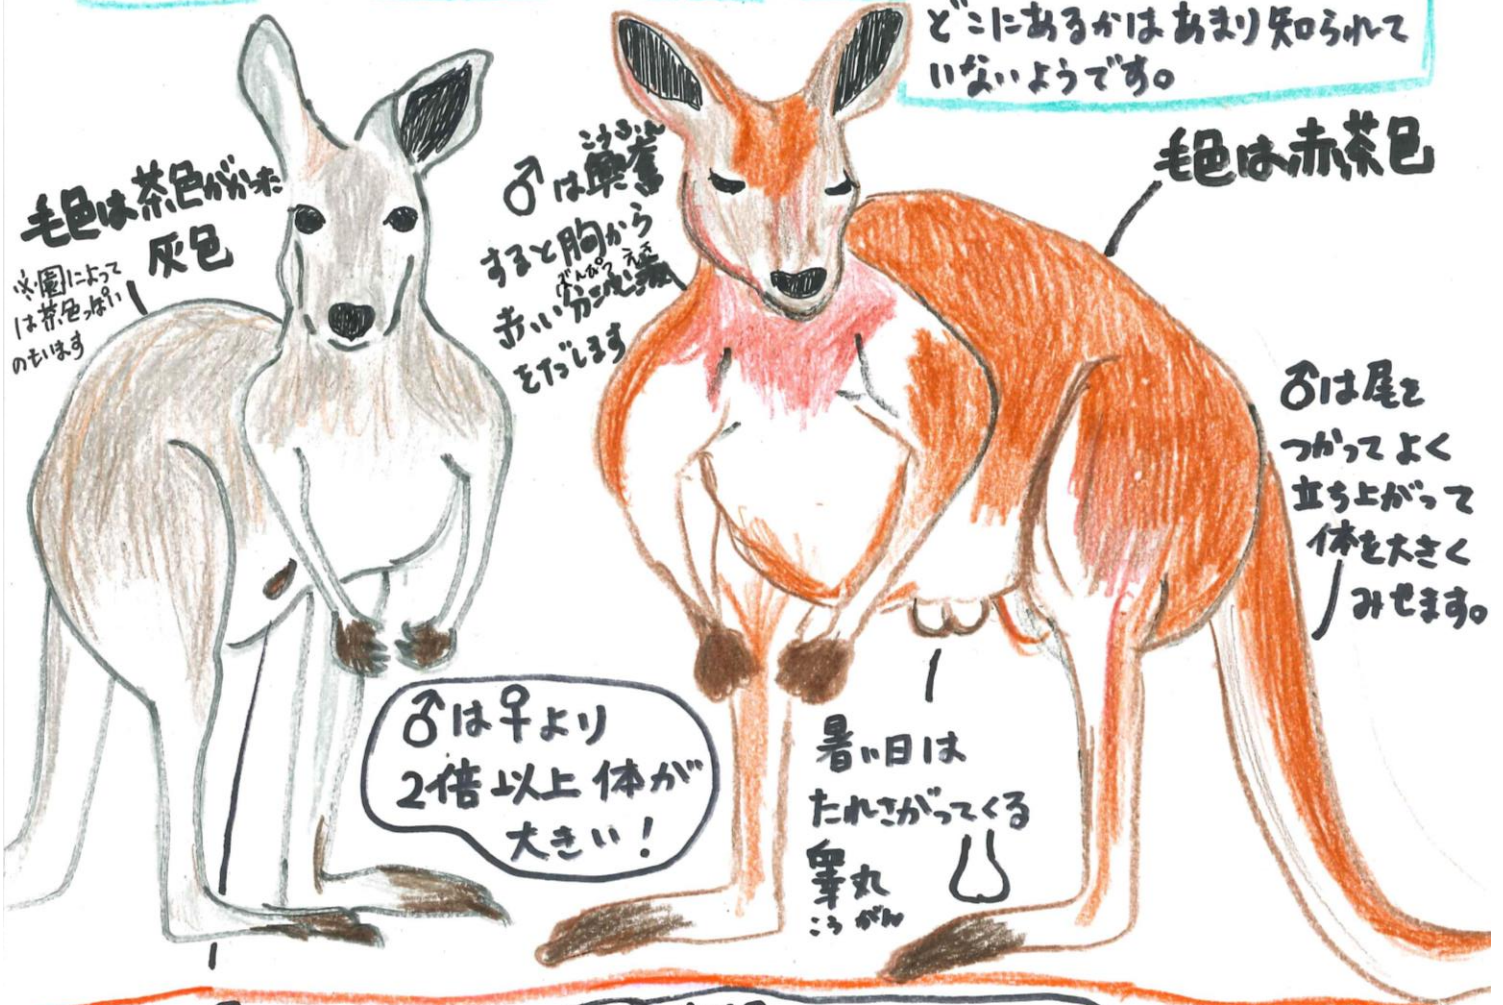 どこにあるかはあまり知られて
いないようです。
毛色は茶色がかった
灰色
※園によって
は茶色っぽい
のもいます
こうふん
♂は興奮
すると胸から
ぶんぴつ えき
赤い分泌液
をだします
毛色は赤茶色
♂は尾を
つかってよく
立ち上がって
体を大きく
みせます。
♂は♀より
2倍以上体が
大きい!
暑い日は
たれさがってくる
睾丸
こうがん